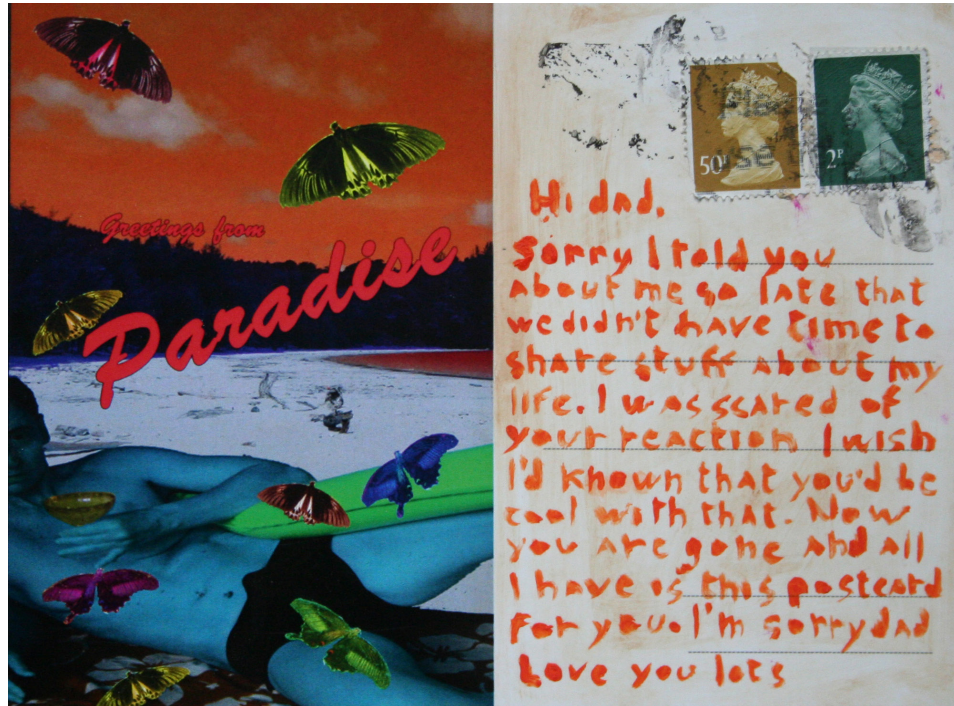 Greetings from
Paradise
50P
2P
Hi dad,
Sorry I told you
about me so late that
we didn't have time to
share stuff about my
life. I was scared of
your reaction I wish
I'd known that you'd be
cool with that. Now
you are gone and all
I have is this postcard
for you. I'm sorry dad
Love you lots